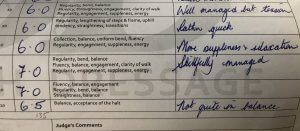 Regularity, bend, balance
6.0 Fluency, balance, engagement, clarity of walk Well managed but tension
Regularity, engagement, suppleness, energy
Regularity, lengthening of steps & frame, uphill
6.0 tendency, straightness, transitions Rather quick
6.0 Collection, balance, uniform bend, fluency More suppleness &
Regularity, engagement, suppleness, energy
Regularity, bend, balance
7.0 Fluency, balance, engagement, clarity of walk Skilfully managed
Regularity, engagement, suppleness, energy
Fluency, balance, engagement
7.0 Regularity, bend, balance
Straightness, balance
6.5 Balance, acceptance of the halt Not quite in balance
135
Judge's Comments